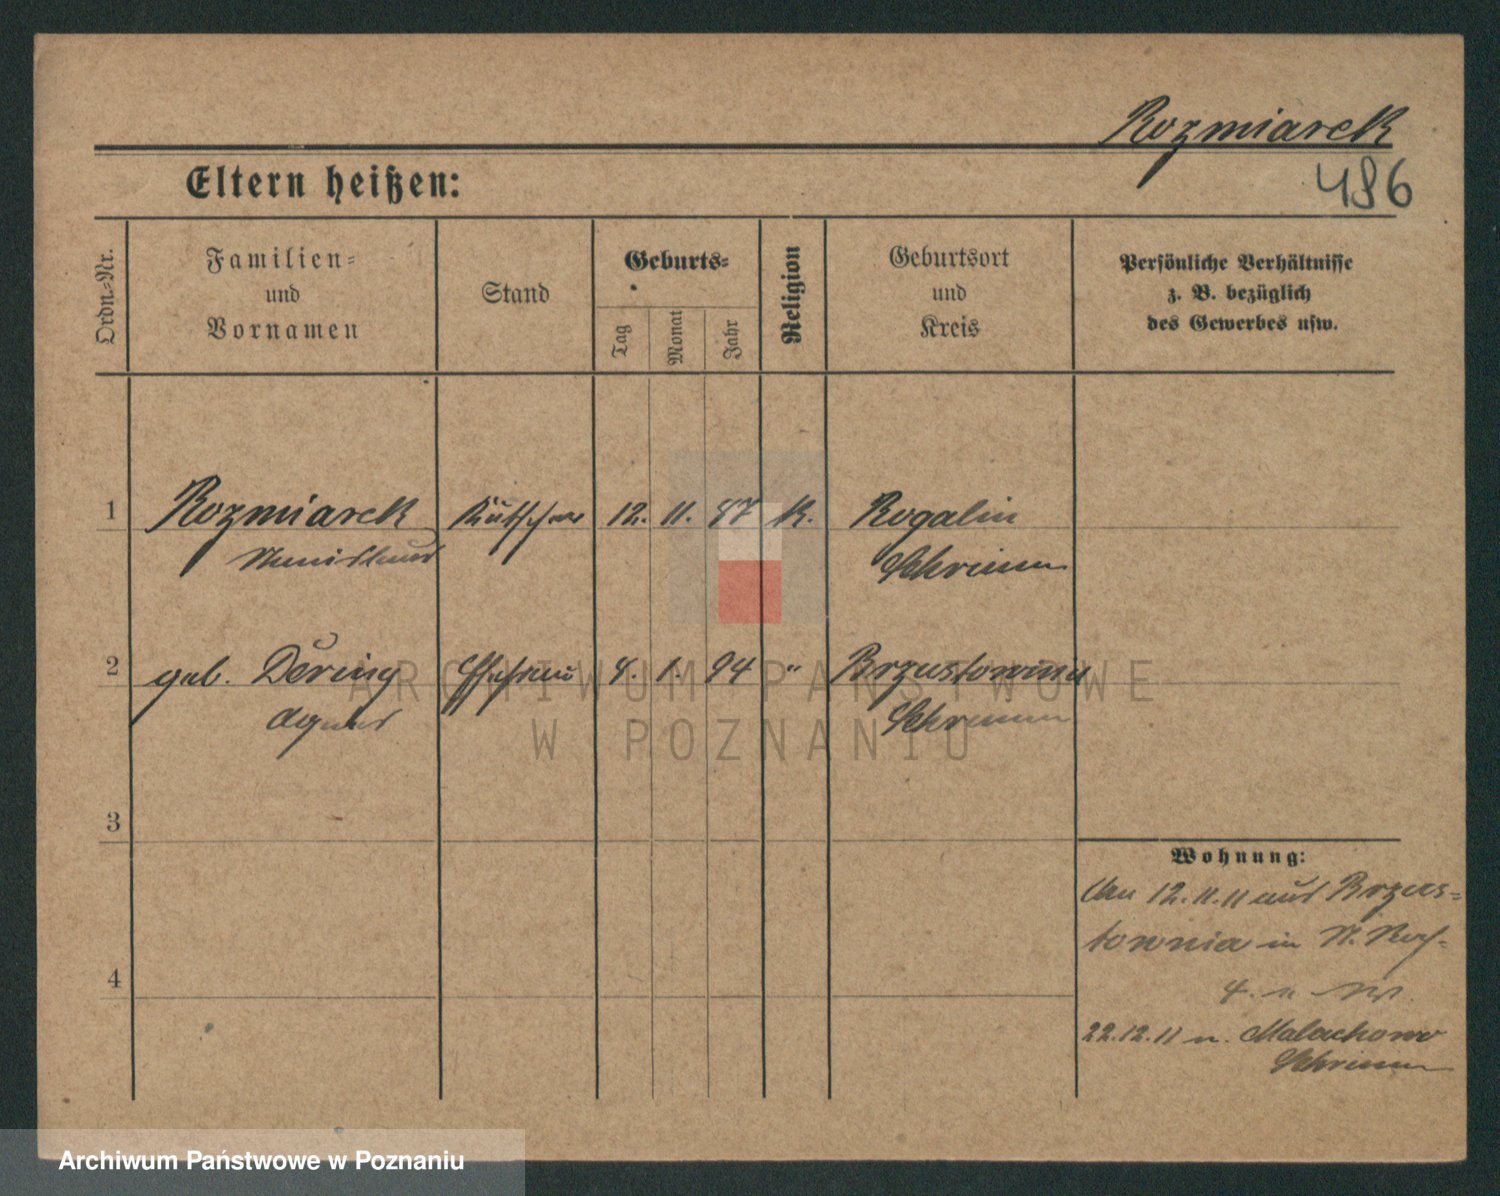 Rozmiarek
486
Eltern heißen:
Ordn.-Nr.
Familien-
und
Vornamen
Stand
Geburts-
Tag
Monat
Jahr
Religion
Geburtsort
und
Kreis
Persönliche Verhältnisse
z. B. bezüglich
des Gewerbes usw.
1 Rozmiarek Kutscher 12. 11. 87 K. Rogalin
Stanislaus Schrimm
2 geb. Dering Ehefrau 8. 1. 94 " Brzustownia
Agnes Schrimm
3
4
Wohnung:
Am 12.11.11 aus Brzus-
townia in St. Roch-
4.
22.12.11 n. Malachowo
Schrimm
ARCHIWUM PAŃSTWOWE
W POZNANIU
Archiwum Państwowe w Poznaniu